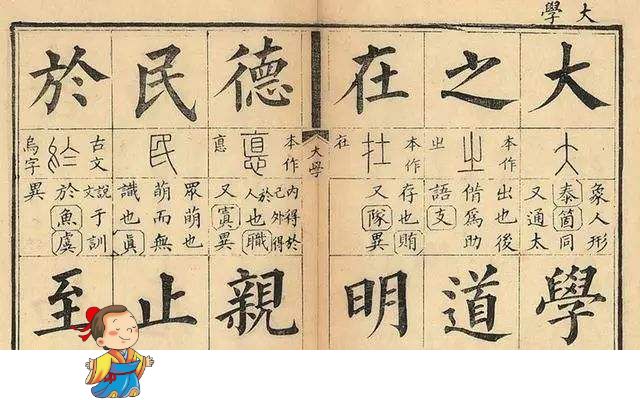 大學
大
象人形
泰箇同
又通太
學
之
本作
㞢
出也後
偕為助
語支
道
在
在
存也賄
又隊異
明
大學
德
本作
悳
內得於
己外得
於人也職
又寘異
親
民
眾萌也
萌而無
識也真
止
於
古文
烏字
說文于訓
於魚虞
異
至